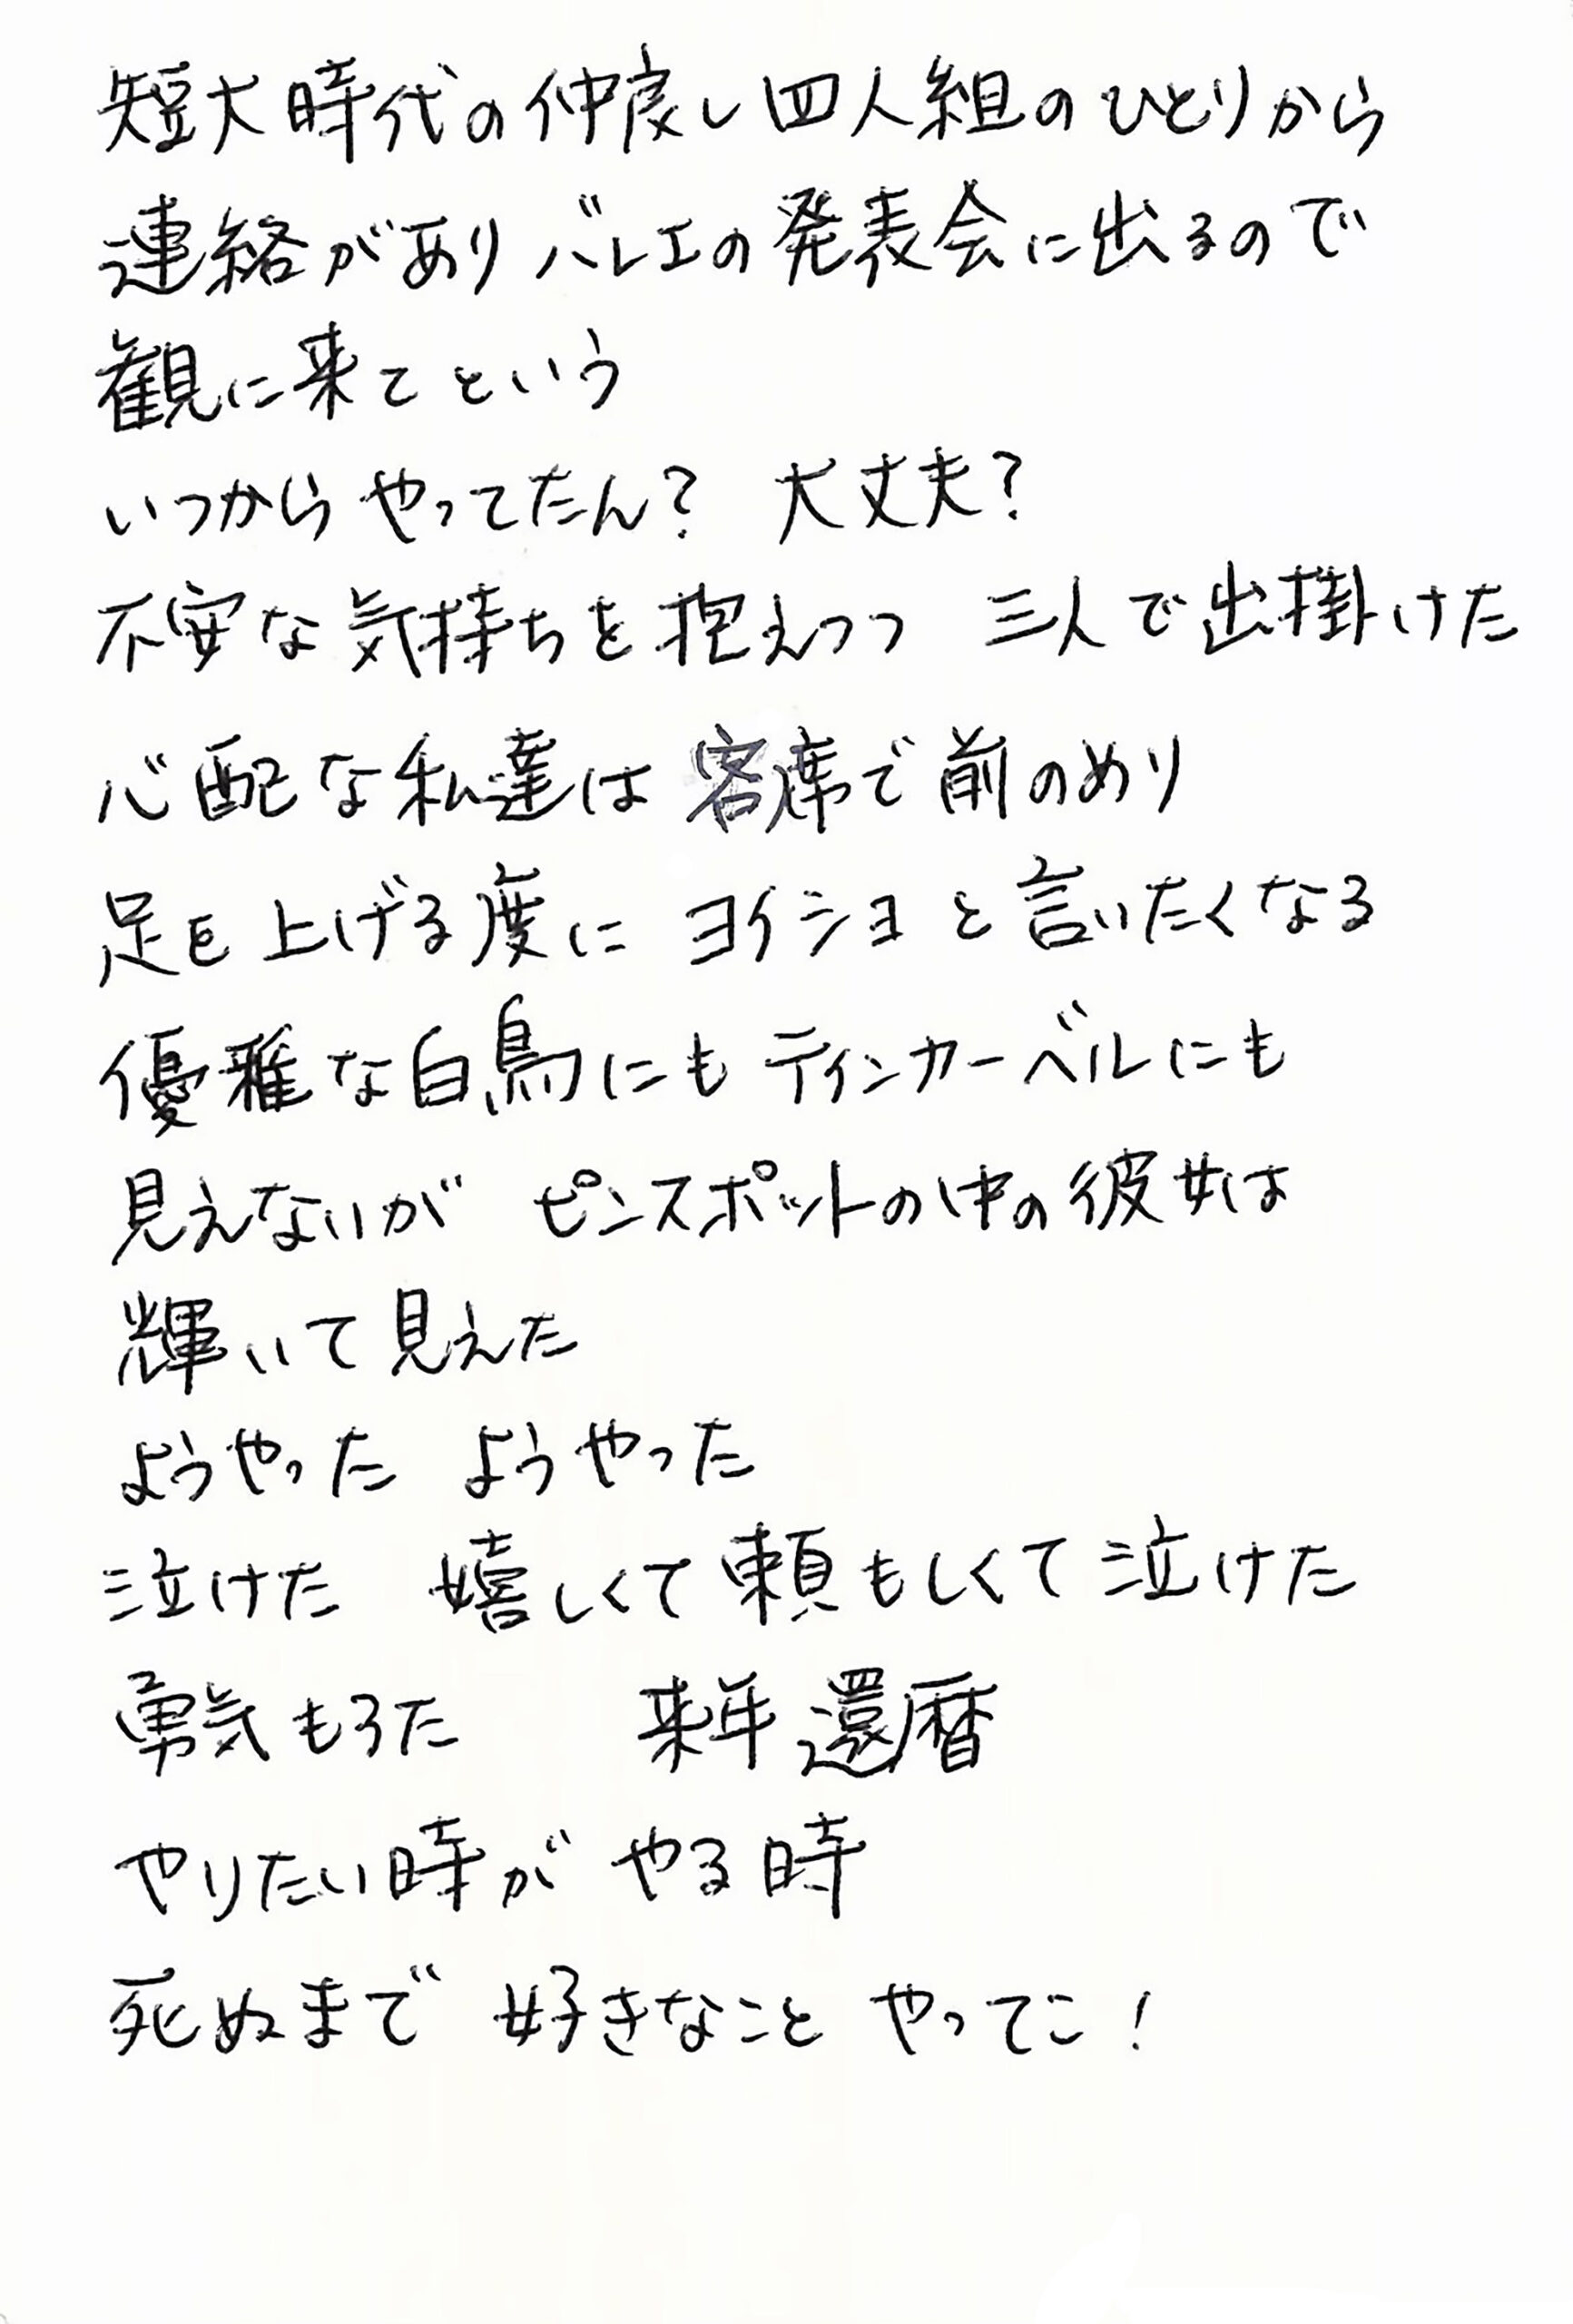 短大時代の仲良し四人組のひとりから
連絡がありバレエの発表会に出るので
観に来てという
いつからやってたん? 大丈夫?
不安な気持ちを抱えつつ 三人で出掛けた
心配な私達は客席で前のめり
足を上げる度に ヨイショと言いたくなる
優雅な白鳥にもティンカーベルにも
見えないが ピンスポットの中の彼女は
輝いて見えた
ようやった ようやった
泣けた 嬉しくて頼もしくて泣けた
勇気もろた 来年還暦
やりたい時が やる時
死ぬまで 好きなこと やってこ!